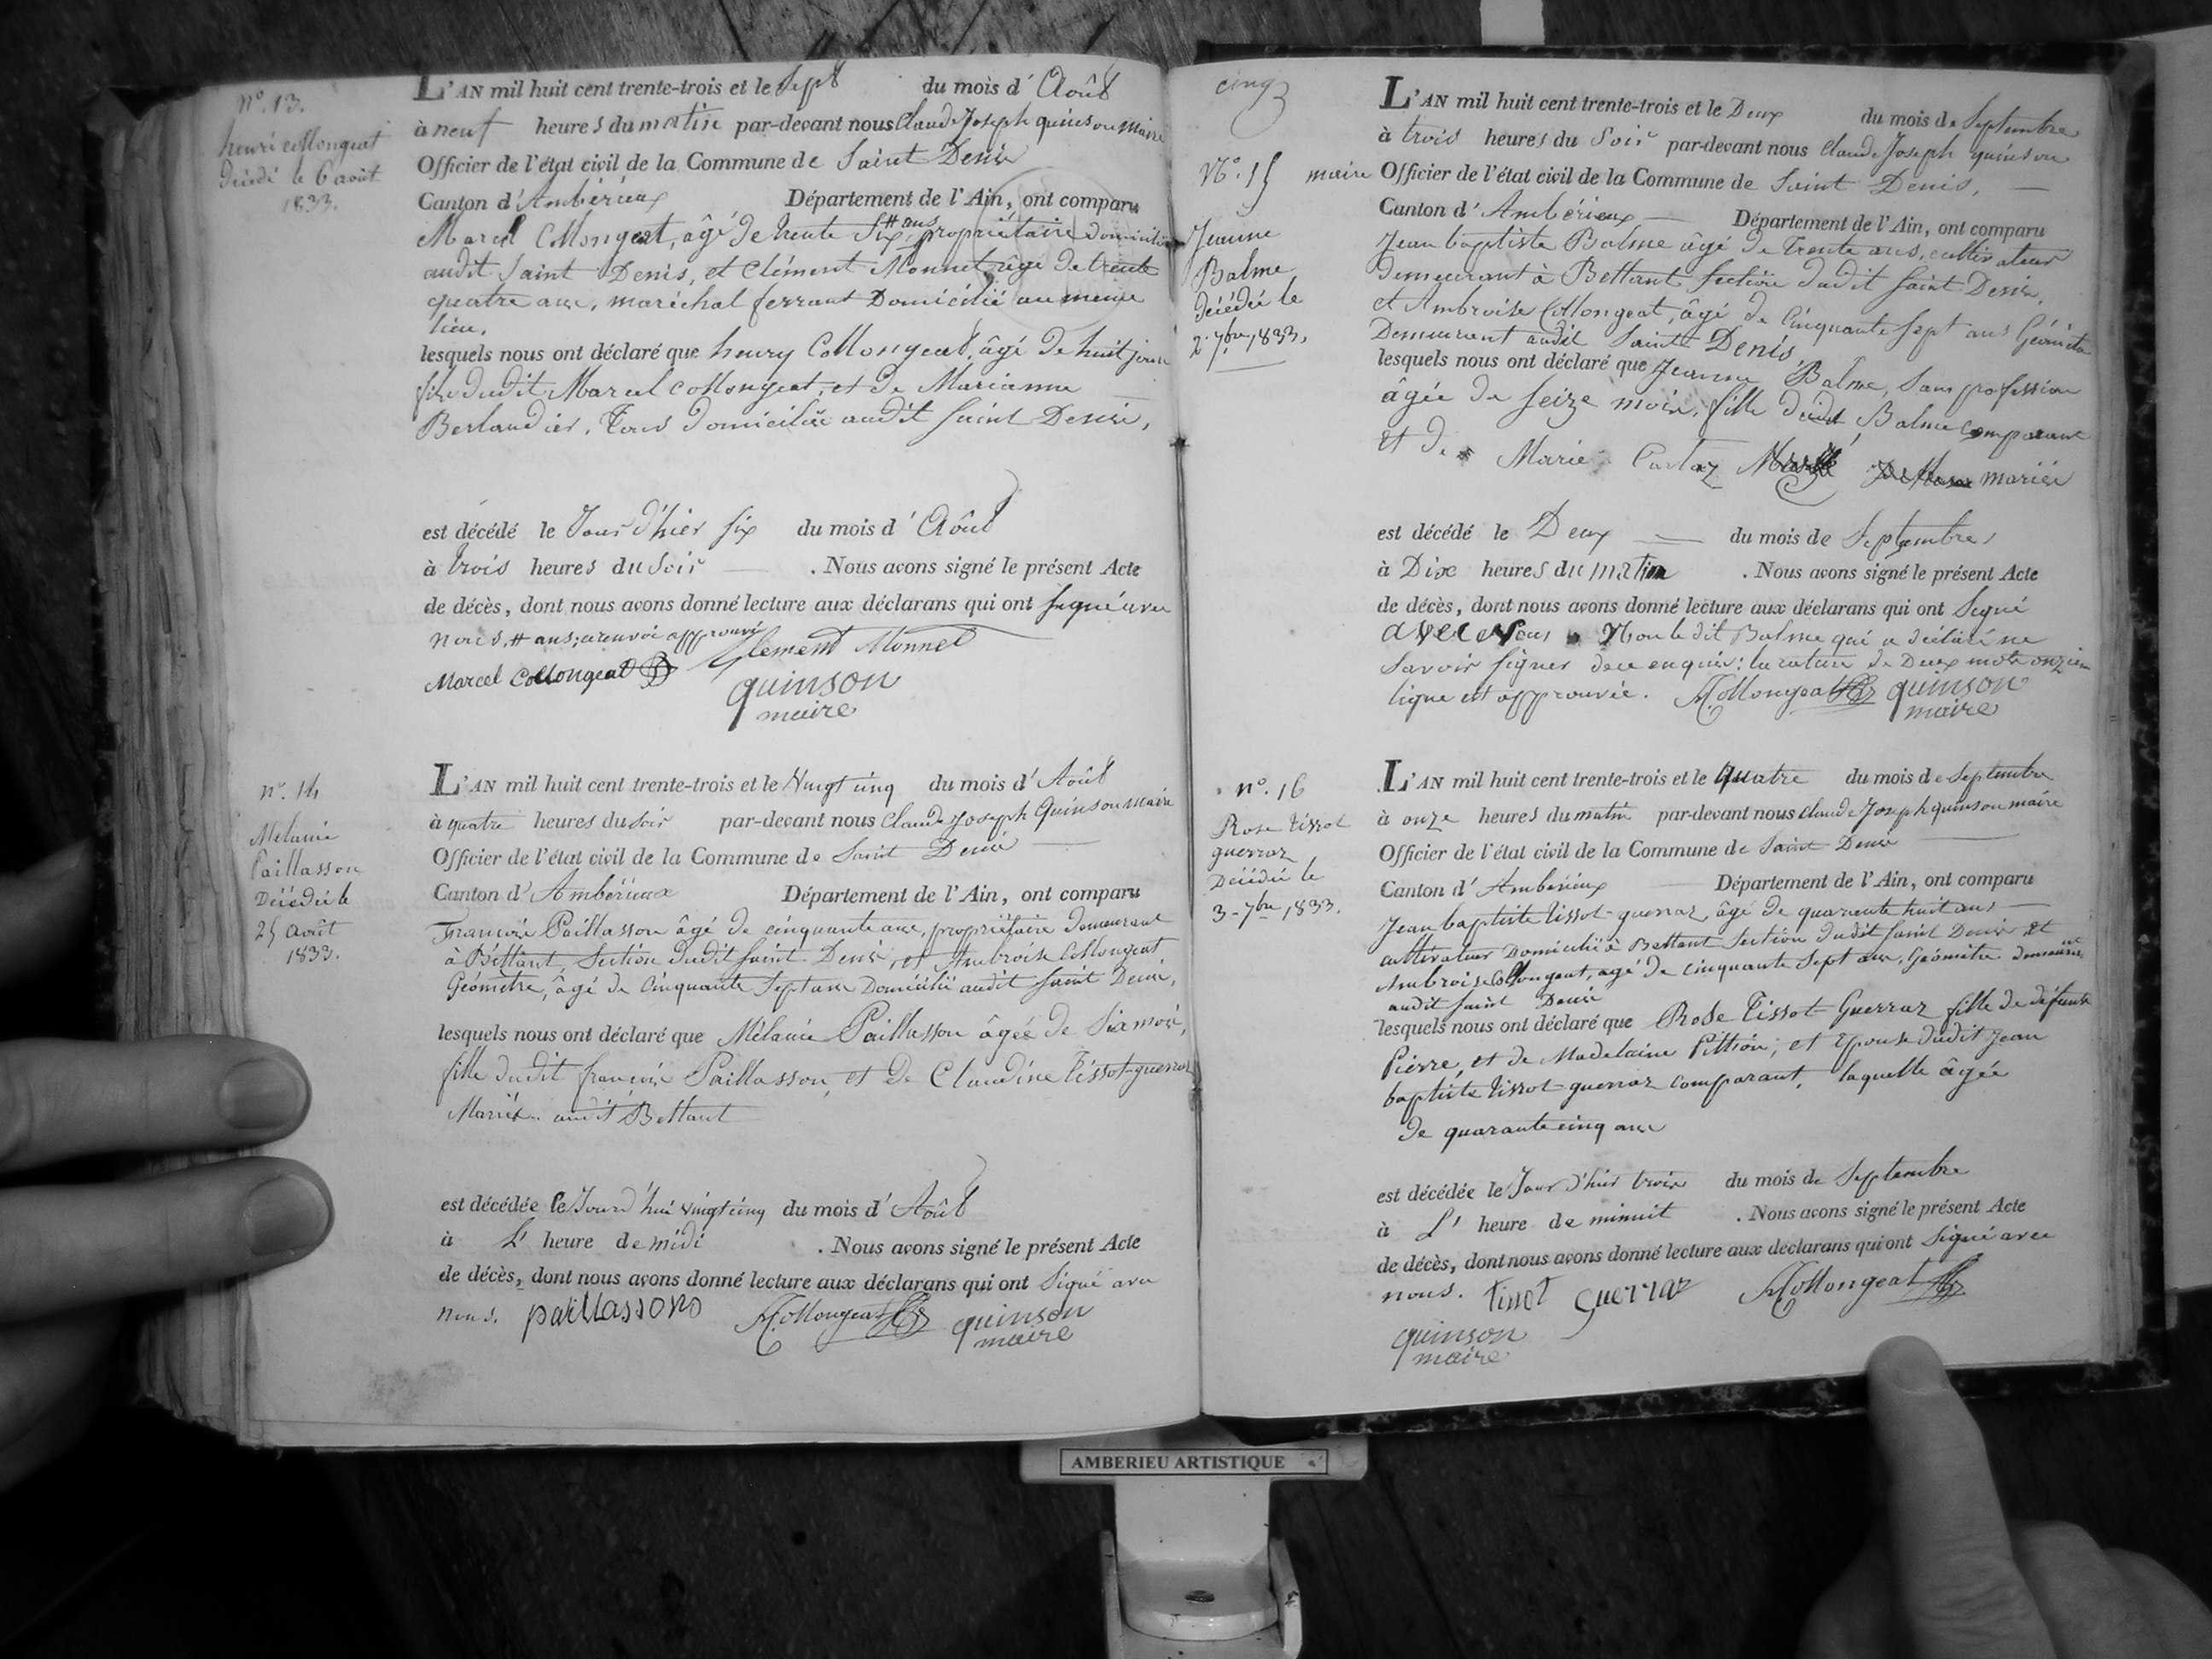 n°. 13.
henri collongeat
décédé le 6 août
1833.
L'AN mil huit cent trente-trois et le Sept du mois d' Août
à neuf heures du matin par-devant nous Claude Joseph quinson maire
Officier de l'état civil de la Commune de Saint Denis
Canton d'Ambérieux Département de l'Ain, ont comparu
Marcel Collongeat, âgé de trente Six # ans, propriétaire domicilié
audit Saint Denis, et Clément Monnet âgé de trente
quatre ans, maréchal ferrant Domicilié au meme
lieu.
lesquels nous ont déclaré que henry Collongeat, âgé de huit jours
fils dudit Marcel Collongeat, et de Marianne
Berlandier, Tous domiciliés audit Saint Denis,
est décédé le Jour d'hier six du mois d' Août
à trois heures du Soir . Nous avons signé le présent Acte
de décès, dont nous avons donné lecture aux déclarans qui ont signé avec
nous, # ans; a renvoi approuvé
Clement Monnet
Marcel Collongeat
quinson
maire
n°. 14
Mélanie
Paillasson
Décédée le
25 août
1833.
L'AN mil huit cent trente-trois et le Vingt cinq du mois d' Août
à quatre heures du soir par-devant nous Claude Joseph Quinson maire
Officier de l'état civil de la Commune de Saint Denis
Canton d'Ambérieux Département de l'Ain, ont comparu
François Paillasson âgé de cinquante ans, propriétaire demeurant
à Bettant, Section dudit Saint Denis, et Ambroise Collongeat,
Géomètre, âgé de Cinquante Sept ans Domicilié audit Saint Denis,
lesquels nous ont déclaré que Mélanie Paillasson âgée de Six mois,
fille dudit françois Paillasson, et de Claudine Tissot-guerraz
Mariés audit Bettant
est décédée le Jourd'hui vingt cinq du mois d' Août
à L' heure de midi . Nous avons signé le présent Acte
de décès, dont nous avons donné lecture aux déclarans qui ont Signé avec
nous. paillasson A Collongeat quinson
maire
cinq
N°. 15
Jeanne
Balme
décédée le
2. 7bre 1833.
L'AN mil huit cent trente-trois et le Deux du mois de Septembre
à trois heures du Soir par-devant nous Claude Joseph quinson
maire Officier de l'état civil de la Commune de Saint Denis,
Canton d' Ambérieux Département de l'Ain, ont comparu
Jean baptiste Balme âgé de Trente ans, cultivateur
demeurant à Bettant Section dudit Saint Denis,
et Ambroise Collongeat, âgé de Cinquante Sept ans Géomètre
Demeurant audit Saint Denis,
lesquels nous ont déclaré que Jeanne Balme, Sans profession
âgée de seize mois, fille dudit Balme comparant
et de Marie mariés
est décédé le Deux du mois de Septembre
à Dix heures du matin . Nous avons signé le présent Acte
de décès, dont nous avons donné lecture aux déclarans qui ont Signé
avec Nous Non le dit Balme qui a déclaré ne
Savoir signer de ce enquis: la rature de Deux mots onzieme
ligne est approuvée. A Collongeat quinson
maire
n°. 16
Rose tissot
guerraz
Décédée le
3 - 7bre 1833.
L'AN mil huit cent trente-trois et le quatre du mois de Septembre
à onze heures du matin par-devant nous Claude Joseph quinson maire
Officier de l'état civil de la Commune de Saint Denis
Canton d' Ambérieux Département de l'Ain, ont comparu
Jean baptiste tissot-guerraz, âgé de quarante huit ans
cultivateur Domicilié à Bettant Section dudit Saint Denis et
Ambroise Collongeat, âgé de cinquante Sept ans, Géomètre demeurant
audit Saint Denis
lesquels nous ont déclaré que Rose Tissot-Guerraz fille de défunts
Pierre, et de Madelaine Pittion, et Epouse dudit Jean
baptiste tissot-guerraz comparant, laquelle âgée
de quarante cinq ans
est décédée le Jour d'hier trois du mois de Septembre
à L' heure de minuit . Nous avons signé le présent Acte
de décès, dont nous avons donné lecture aux déclarans qui ont Signé avec
nous. tissot guerraz A Collongeat
quinson
maire
AMBERIEU ARTISTIQUE